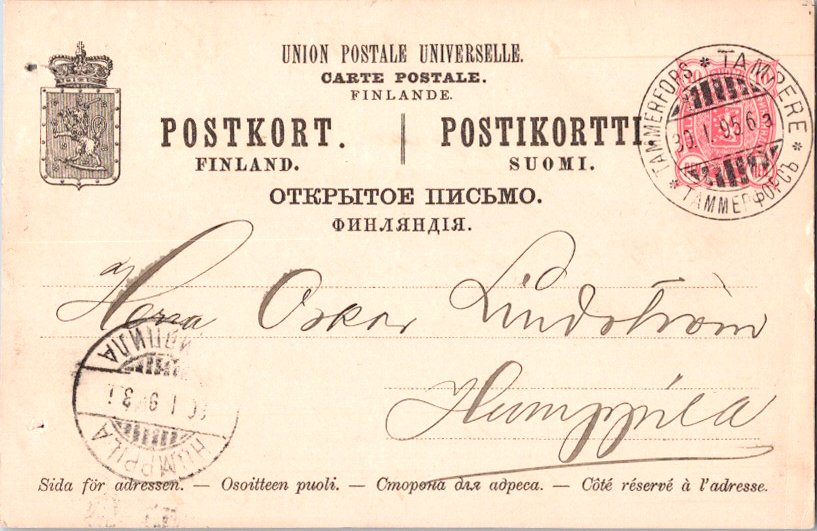 UNION POSTALE UNIVERSELLE.
CARTE POSTALE.
FINLANDE.
POSTKORT. POSTIKORTTI
FINLAND. SUOMI.
ОТКРЫТОЕ ПИСЬМО.
ФИНЛЯНДІЯ.
TAMMERFORS * TAMPERE * ТАММЕРФОРСЪ *
30. I. 95. 6 a
10 10
Herra Oskar Lindström
Humppila
HUMPPILA
Sida för adressen. — Osoitteen puoli. — Сторона для адреса. — Côté réservé à l'adresse.